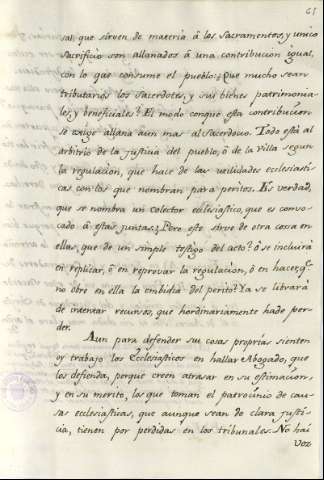 61
sas que sirven de materia â los Sacramentos, y unico
Sacrificio son allanados â una contribución igual,
con lo que consume el pueblo: ¿Que mucho sean
tributarios los Sacerdotes, y sus bienes patrimonia-
les, y beneficiales? El modo con que esta contribucion
se exige allana aun mas al Sacerdocio. Todo està al
arbitrio de la justicia del pueblo, ô de la Villa segun
la regulacion, que hace de las utilidades ecclesiasti-
cas con los que nombran para peritos. Es verdad,
que se nombra un colector ecclesiastico, que es convo-
cado â estas juntas; ¿Pero este sirve de otra cosa en
ellas, que de un simple testigo del acto? ô se incluirà
en replicar, ô en reprovar la regulacion, ô en hacer, q.e
no obre en ella la embidia del perito? Ya se librarà
de intentar recursos, que hordinariamente hade per-
der.
Aun para defender sus cosas propias sienten
oy trabajo los Ecclesiasticos en hallar Abogado, que
los defienda, porque creen atrasar en su estimacion,
y en su merito, los que toman el patrocinio de cau-
sas ecclesiasticas, que aunque sean de clara justi-
cia, tienen por perdidas en los tribunales. No hai
voz